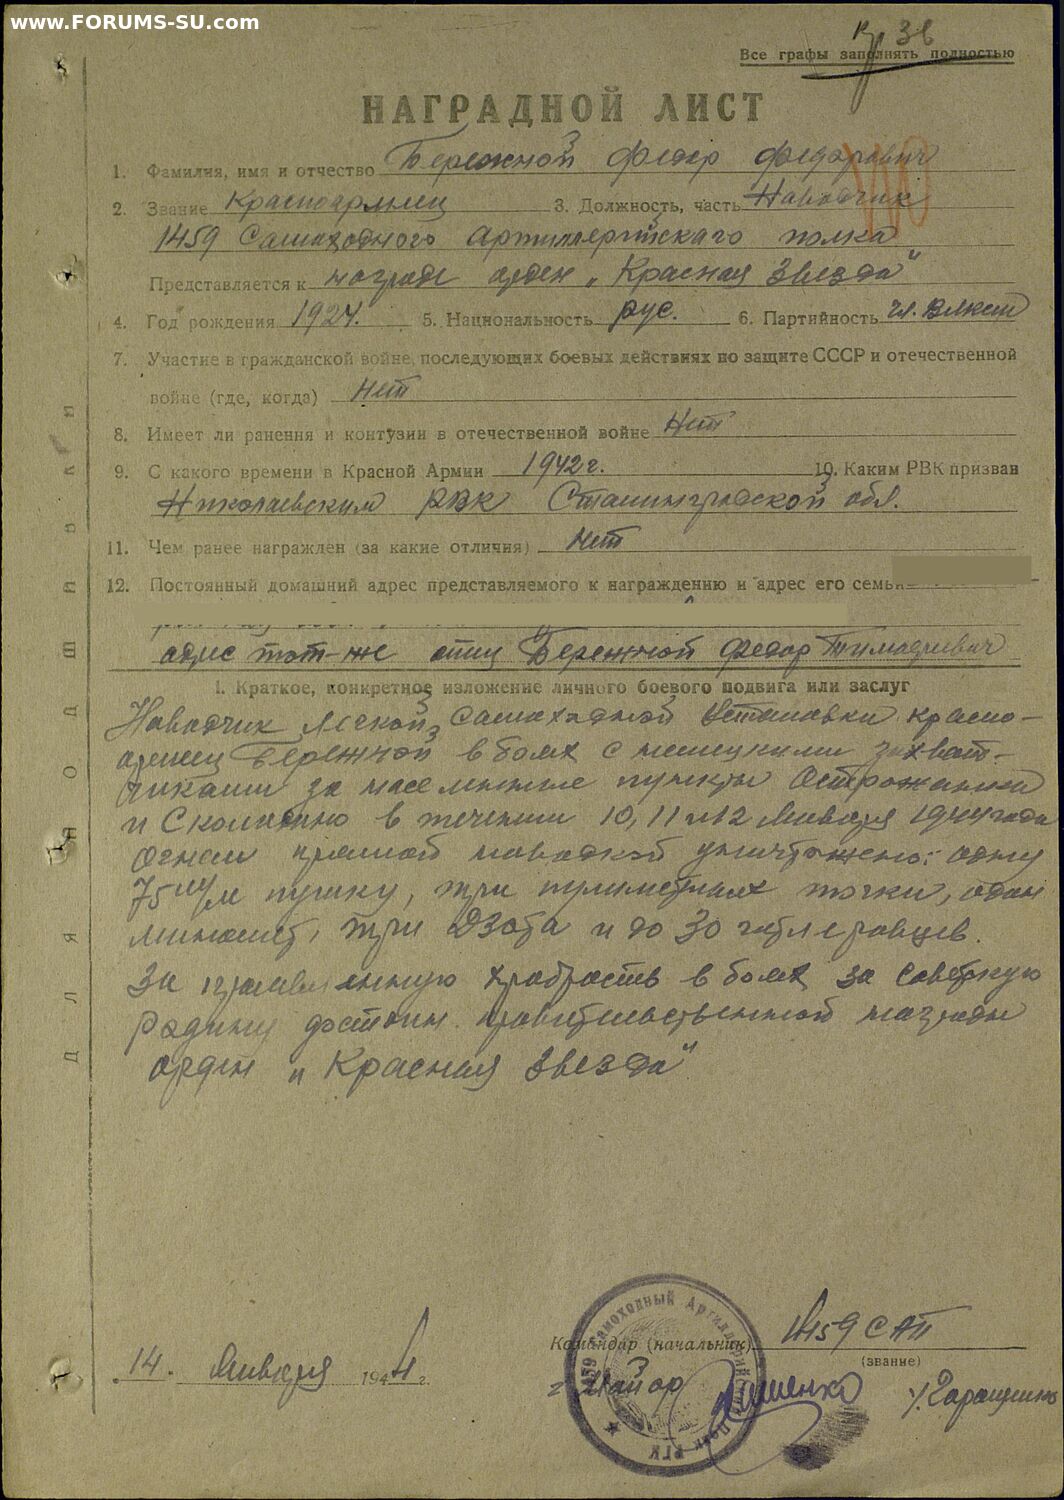 www.FORUMS-SU.com
Все графы заполнять полностью
НАГРАДНОЙ ЛИСТ
1. Фамилия, имя и отчество Бережной Федор Федорович
2. Звание Красноармеец 3. Должность, часть Наводчик
1459 Самоходного Артиллерийского полка
Представляется к награде орден „Красная Звезда"
4. Год рождения 1924. 5. Национальность рус. 6. Партийность чл. Влксм
7. Участие в гражданской войне, последующих боевых действиях по защите СССР и отечественной
войне (где, когда) Нет
8. Имеет ли ранения и контузии в отечественной войне Нет
9. С какого времени в Красной Армии 1942 г. 10. Каким РВК призван
Николаевским РВК Сталинградской обл.
11. Чем ранее награжден (за какие отличия) Нет
12. Постоянный домашний адрес представляемого к награждению и адрес его семьи
адрес тот-же отец Бережной Федор Тимофеевич
I. Краткое, конкретное изложение личного боевого подвига или заслуг
Наводчик самоходной Установки красно-
армеец Бережной в боях с немецкими захват-
чиками за населенные пункты Остражанка
и в течении 10, 11 и 12 Января 1944 года
огнем прямой наводкой уничтожено: одну
75 м/м пушку, три пулиметных точки, один
миномет, три Дзота и до 30 гитлеровцев.
За храбрость в боях за советскую
Родину достоин правительственной награды
орден „Красная Звезда"
ДЛЯ ПОДШИВКИ
14. Января 1944 г.
Командир (начальник) 1459 САП
(звание)
г. Майор
1459 Самоходный Артиллерийский Полк РГК